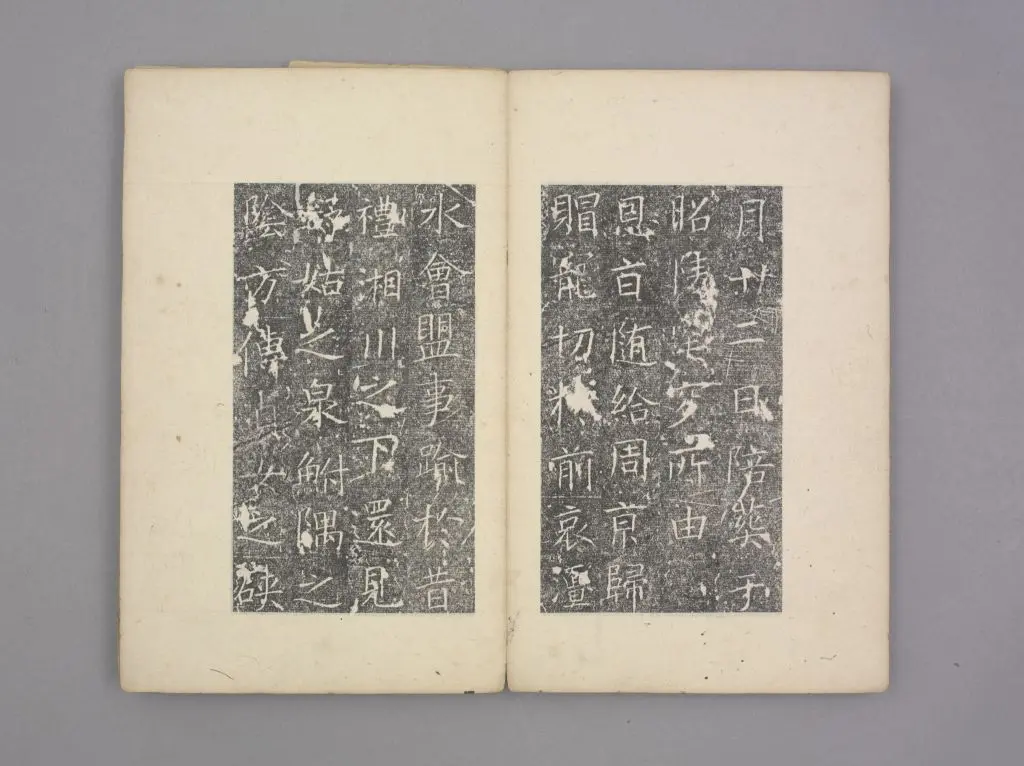 月廿二日陪葬于
昭陵
所由
恩旨随給周京歸
賵龍切
前哀
水會盟事踰於昔
禮湘川之下還見
姑之泉鮒隅之
陰方傳
女之碤